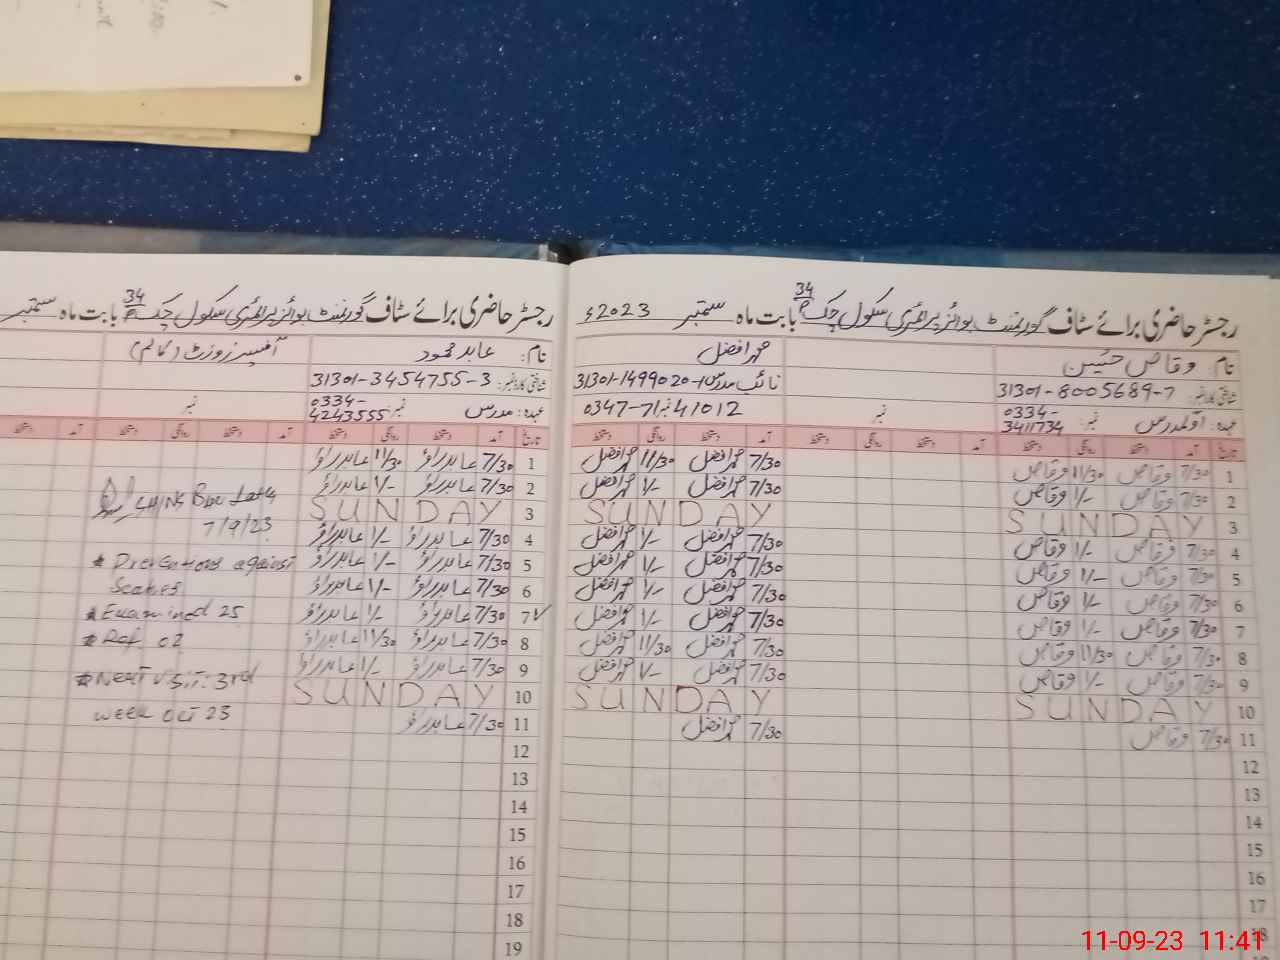 رجسٹر حاضری برائے سٹاف گورنمنٹ بوائز پرائمری سکول چک 34/P بابت ماہ ستمبر 2023ء
نام: وقاص حسین
شناختی کارڈ نمبر: 31301-8005689-7
عہدہ: اول مدرس نمبر: 0334-3411734
محمد افضل
نائب مدرس 31301-1499020-1
0347-7141012 نمبر
نمبر
تاریخ آمد دستخط روانگی دستخط آمد دستخط روانگی دستخط آمد دستخط روانگی دستخط
1 7/30 وقاص 11/30 وقاص 7/30 محمد افضل 11/30 محمد افضل
2 7/30 وقاص 1/- وقاص 7/30 محمد افضل 1/- محمد افضل
3 SUNDAY SUNDAY
4 7/30 وقاص 1/- وقاص 7/30 محمد افضل 1/- محمد افضل
5 7/30 وقاص 1/- وقاص 7/30 محمد افضل 1/- محمد افضل
6 7/30 وقاص 1/- وقاص 7/30 محمد افضل 1/- محمد افضل
7 7/30 وقاص 1/- وقاص 7/30 محمد افضل 1/- محمد افضل
8 7/30 وقاص 11/30 وقاص 7/30 محمد افضل 11/30 محمد افضل
9 7/30 وقاص 1/- وقاص 7/30 محمد افضل 1/- محمد افضل
10 SUNDAY SUNDAY
11 7/30 وقاص 7/30 محمد افضل
12
13
14
15
16
17
18
رجسٹر حاضری برائے سٹاف گورنمنٹ بوائز پرائمری سکول چک 34/P بابت ماہ ستمبر
نام: عابد محمود
شناختی کارڈ نمبر: 31301-3454755-3
عہدہ: مدرس نمبر: 0334-4243555
آفیسرز وزٹ (کالم)
نمبر
تاریخ آمد دستخط روانگی دستخط آمد دستخط روانگی دستخط آمد دستخط
1 7/30 عابد راؤ 11/30 عابد راؤ
2 7/30 عابد راؤ 1/- عابد راؤ
3 SUNDAY
4 7/30 عابد راؤ 1/- عابد راؤ
5 7/30 عابد راؤ 1/- عابد راؤ
6 7/30 عابد راؤ 1/- عابد راؤ
7 7/30 عابد راؤ 1/- عابد راؤ
8 7/30 عابد راؤ 11/30 عابد راؤ
9 7/30 عابد راؤ 1/- عابد راؤ
10 SUNDAY
11 7/30 عابد راؤ
12
13
14
15
16
17
18
19
SH/NS
7/9/23
* Preventions against
Scabies
* Examined 25
* Ref. 02
* Next visit: 3rd
week Oct 23
11-09-23 11:41